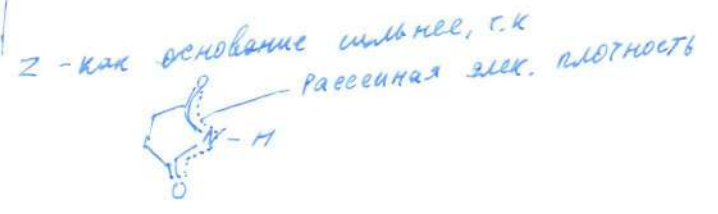 Z - как основание сильнее, т.к
рассеиная элек. плотность
O
N - H
O